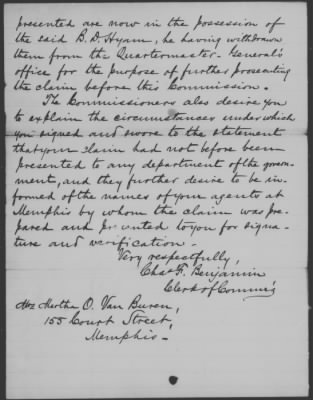 presented are now in the possession of
the said B. D. Hyam, he having withdrawn
them from the Quartermaster-General's
office for the purpose of further prosecuting
the claim before this Commission.
The Commissioners also desire you
to explain the circumstances under which
you signed and swore to the statement
that your claim had not before been
presented to any department of the govern-
ment, and they further desire to be in-
formed of the names of your agents at
Memphis by whom the claim was pre-
pared and presented to you for signa-
ture and verification.
Very respectfully,
Chas. F. Benjamin
Clerk of Comm'rs
Mrs Martha O. Van Buren,
155 Court Street,
Memphis-